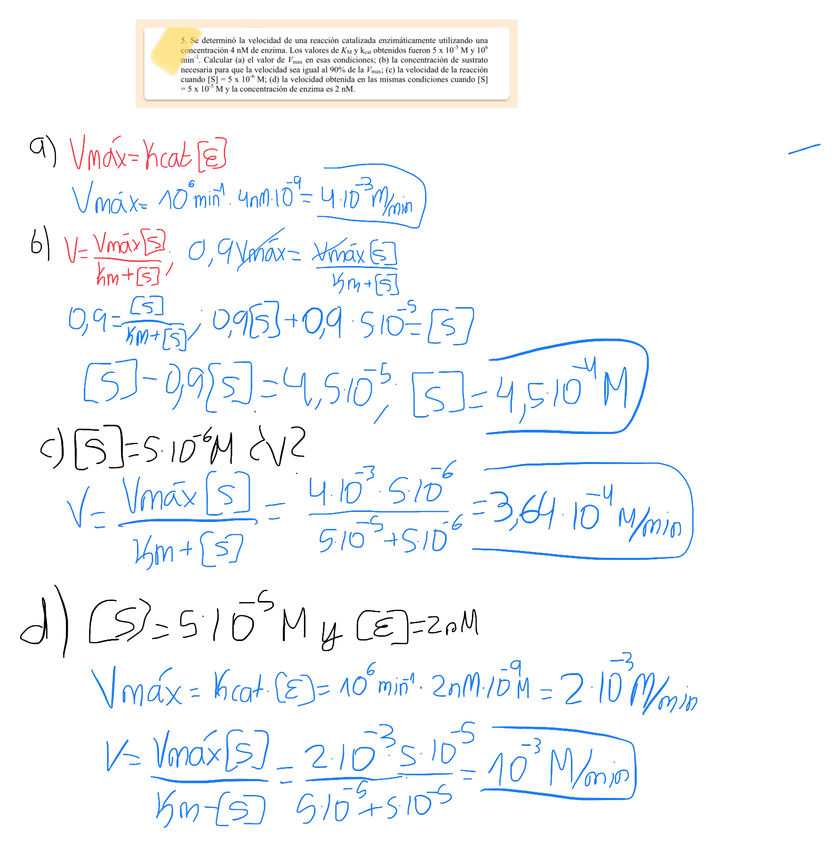 5. Se determinó la velocidad de una reacción catalizada enzimáticamente utilizando una
concentración 4 nM de enzima. Los valores de K_M y k_cat obtenidos fueron 5 x 10⁻⁵ M y 10⁶
min⁻¹. Calcular (a) el valor de V_max en esas condiciones; (b) la concentración de sustrato
necesaria para que la velocidad sea igual al 90% de la V_max; (c) la velocidad de la reacción
cuando [S] = 5 x 10⁻⁶ M; (d) la velocidad obtenida en las mismas condiciones cuando [S]
= 5 x 10⁻⁵ M y la concentración de enzima es 2 nM.
a) Vmáx = Kcat [E]
Vmáx = 10⁶ min⁻¹ · 4nM·10⁻⁹ = 4·10⁻³ M/min
b) V = Vmáx[S] / Km + [S] ; 0,9 Vmáx = Vmáx[S] / Km + [S]
0,9 = [S] / Km + [S] ; 0,9[S] + 0,9 · 5·10⁻⁵ = [S]
[S] - 0,9[S] = 4,5·10⁻⁵ ; [S] = 4,5·10⁻⁴ M
c) [S] = 5·10⁻⁶ M ¿V?
V = Vmáx [S] / Km + [S] = 4·10⁻³ · 5·10⁻⁶ / 5·10⁻⁵ + 5·10⁻⁶ = 3,64·10⁻⁴ M/min
d) [S] = 5·10⁻⁵ M y [E] = 2nM
Vmáx = Kcat · [E] = 10⁶ min⁻¹ · 2nM·10⁻⁹ M = 2·10⁻³ M/min
V = Vmáx[S] / Km-[S] = 2·10⁻³ 5·10⁻⁵ / 5·10⁻⁵ + 5·10⁻⁵ = 10⁻³ M/min